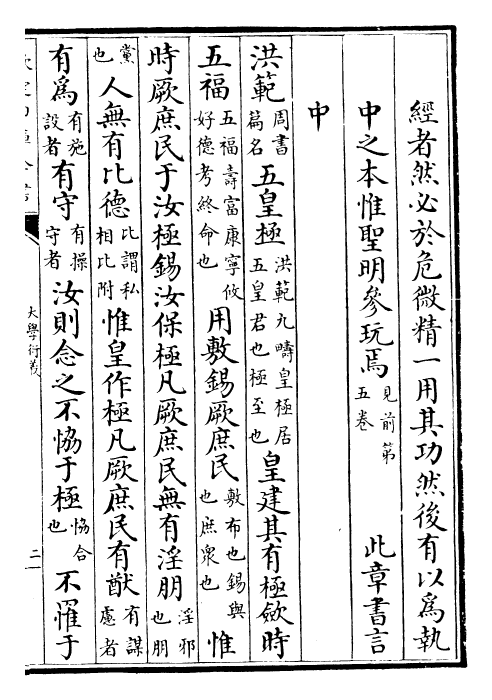 經者然必於危微精一用其功然後有以為執
中之本惟聖明參玩焉見前第五卷 此章書言
中
洪範周書篇名五皇極洪範九疇皇極居五皇君也極至也皇建其有極斂時
五福五福壽富康寧攸好德考終命也用敷錫厥庶民敷布也錫與也庶衆也惟
時厥庶民于汝極錫汝保極凡厥庶民無有淫朋淫邪也朋
黨也人無有比德比謂私相比附惟皇作極凡厥庶民有猷有謀慮者
有為有施設者有守有操守者汝則念之不恊于極恊合也不罹于
大學衍義
二